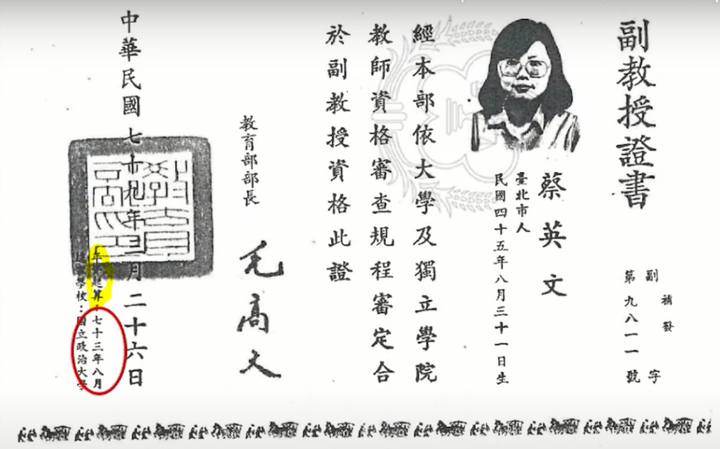 副教授證書
副字
第九八一一號
補發
蔡英文
臺北市人
民國四十五年八月三十一日生
經本部依大學及獨立學院
教師資格審查規程審定合
於副教授資格此證
教育部部長
毛高文
中華民國七十九年三月二十六日
年資起算：七十三年八月
送審學校：國立政治大學